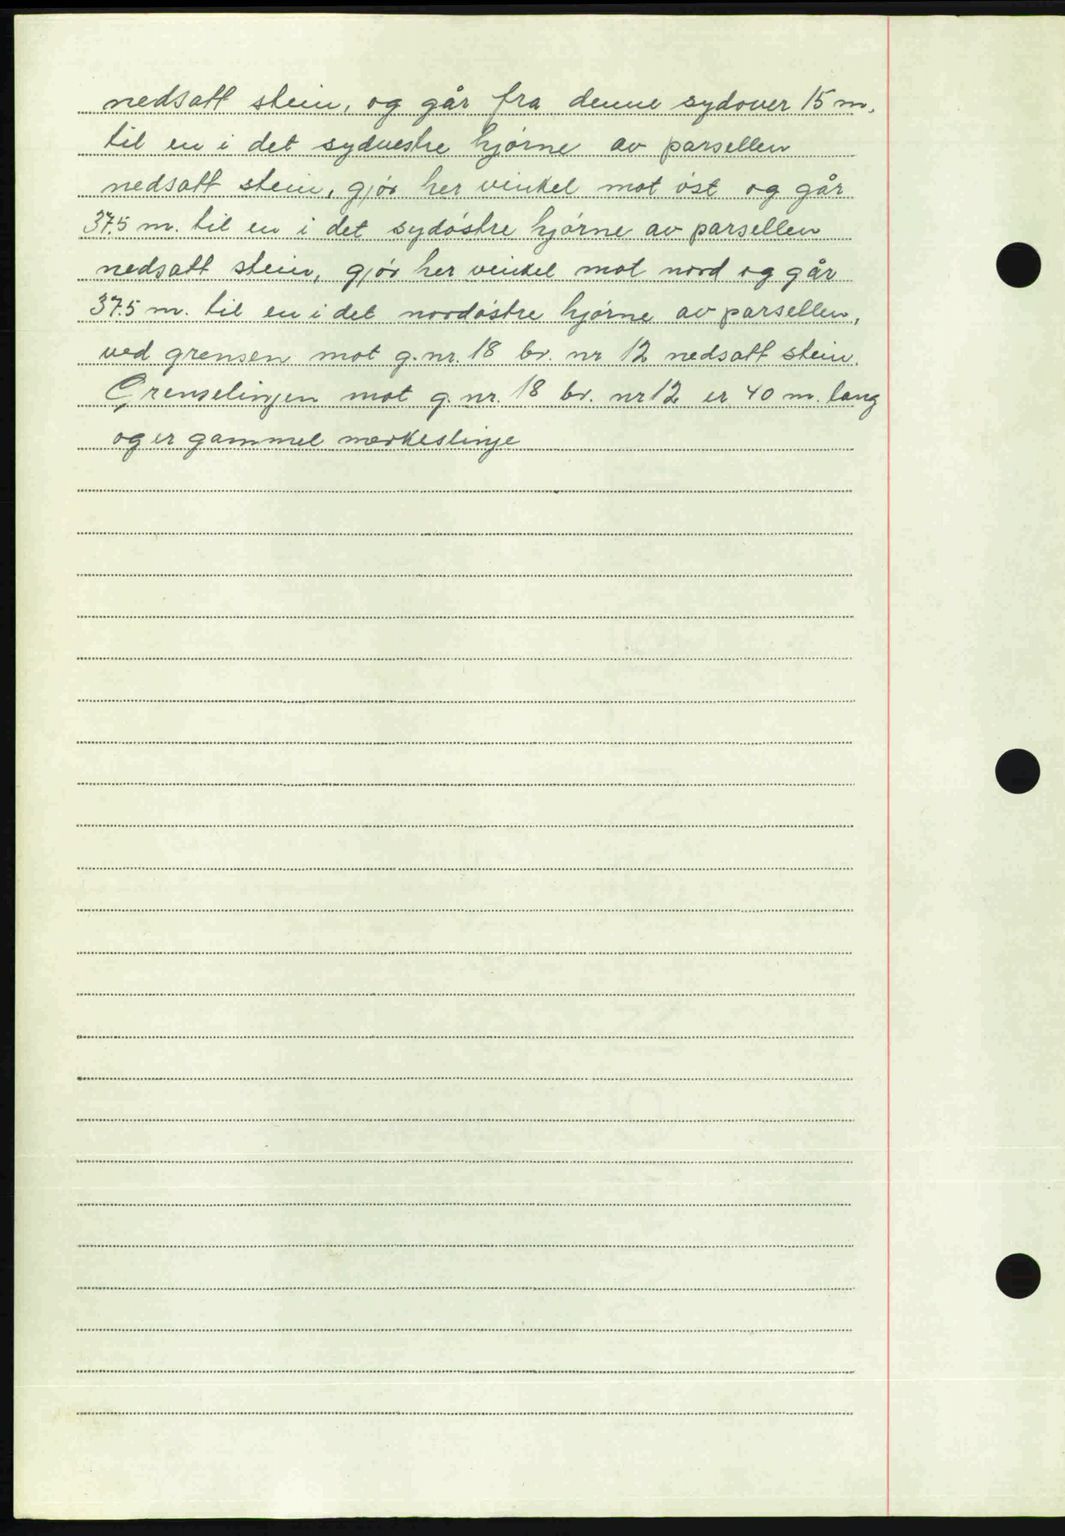 nedsatt stein, og går fra denne sydover 15 m.
til en i det sydvestre hjørne av parsellen
nedsatt stein, gjør her vinkel mot øst og går
37.5 m. til en i det sydøstre hjørne av parsellen
nedsatt stein, gjør her vinkel mot nord og går
37.5 m. til en i det nordøstre hjørne av parsellen,
ved grensen mot g. nr. 18 br. nr 12 nedsatt stein.
Grenselinjen mot g. nr. 18 br. nr 12 er 40 m. lang
og er gammel merkeslinje